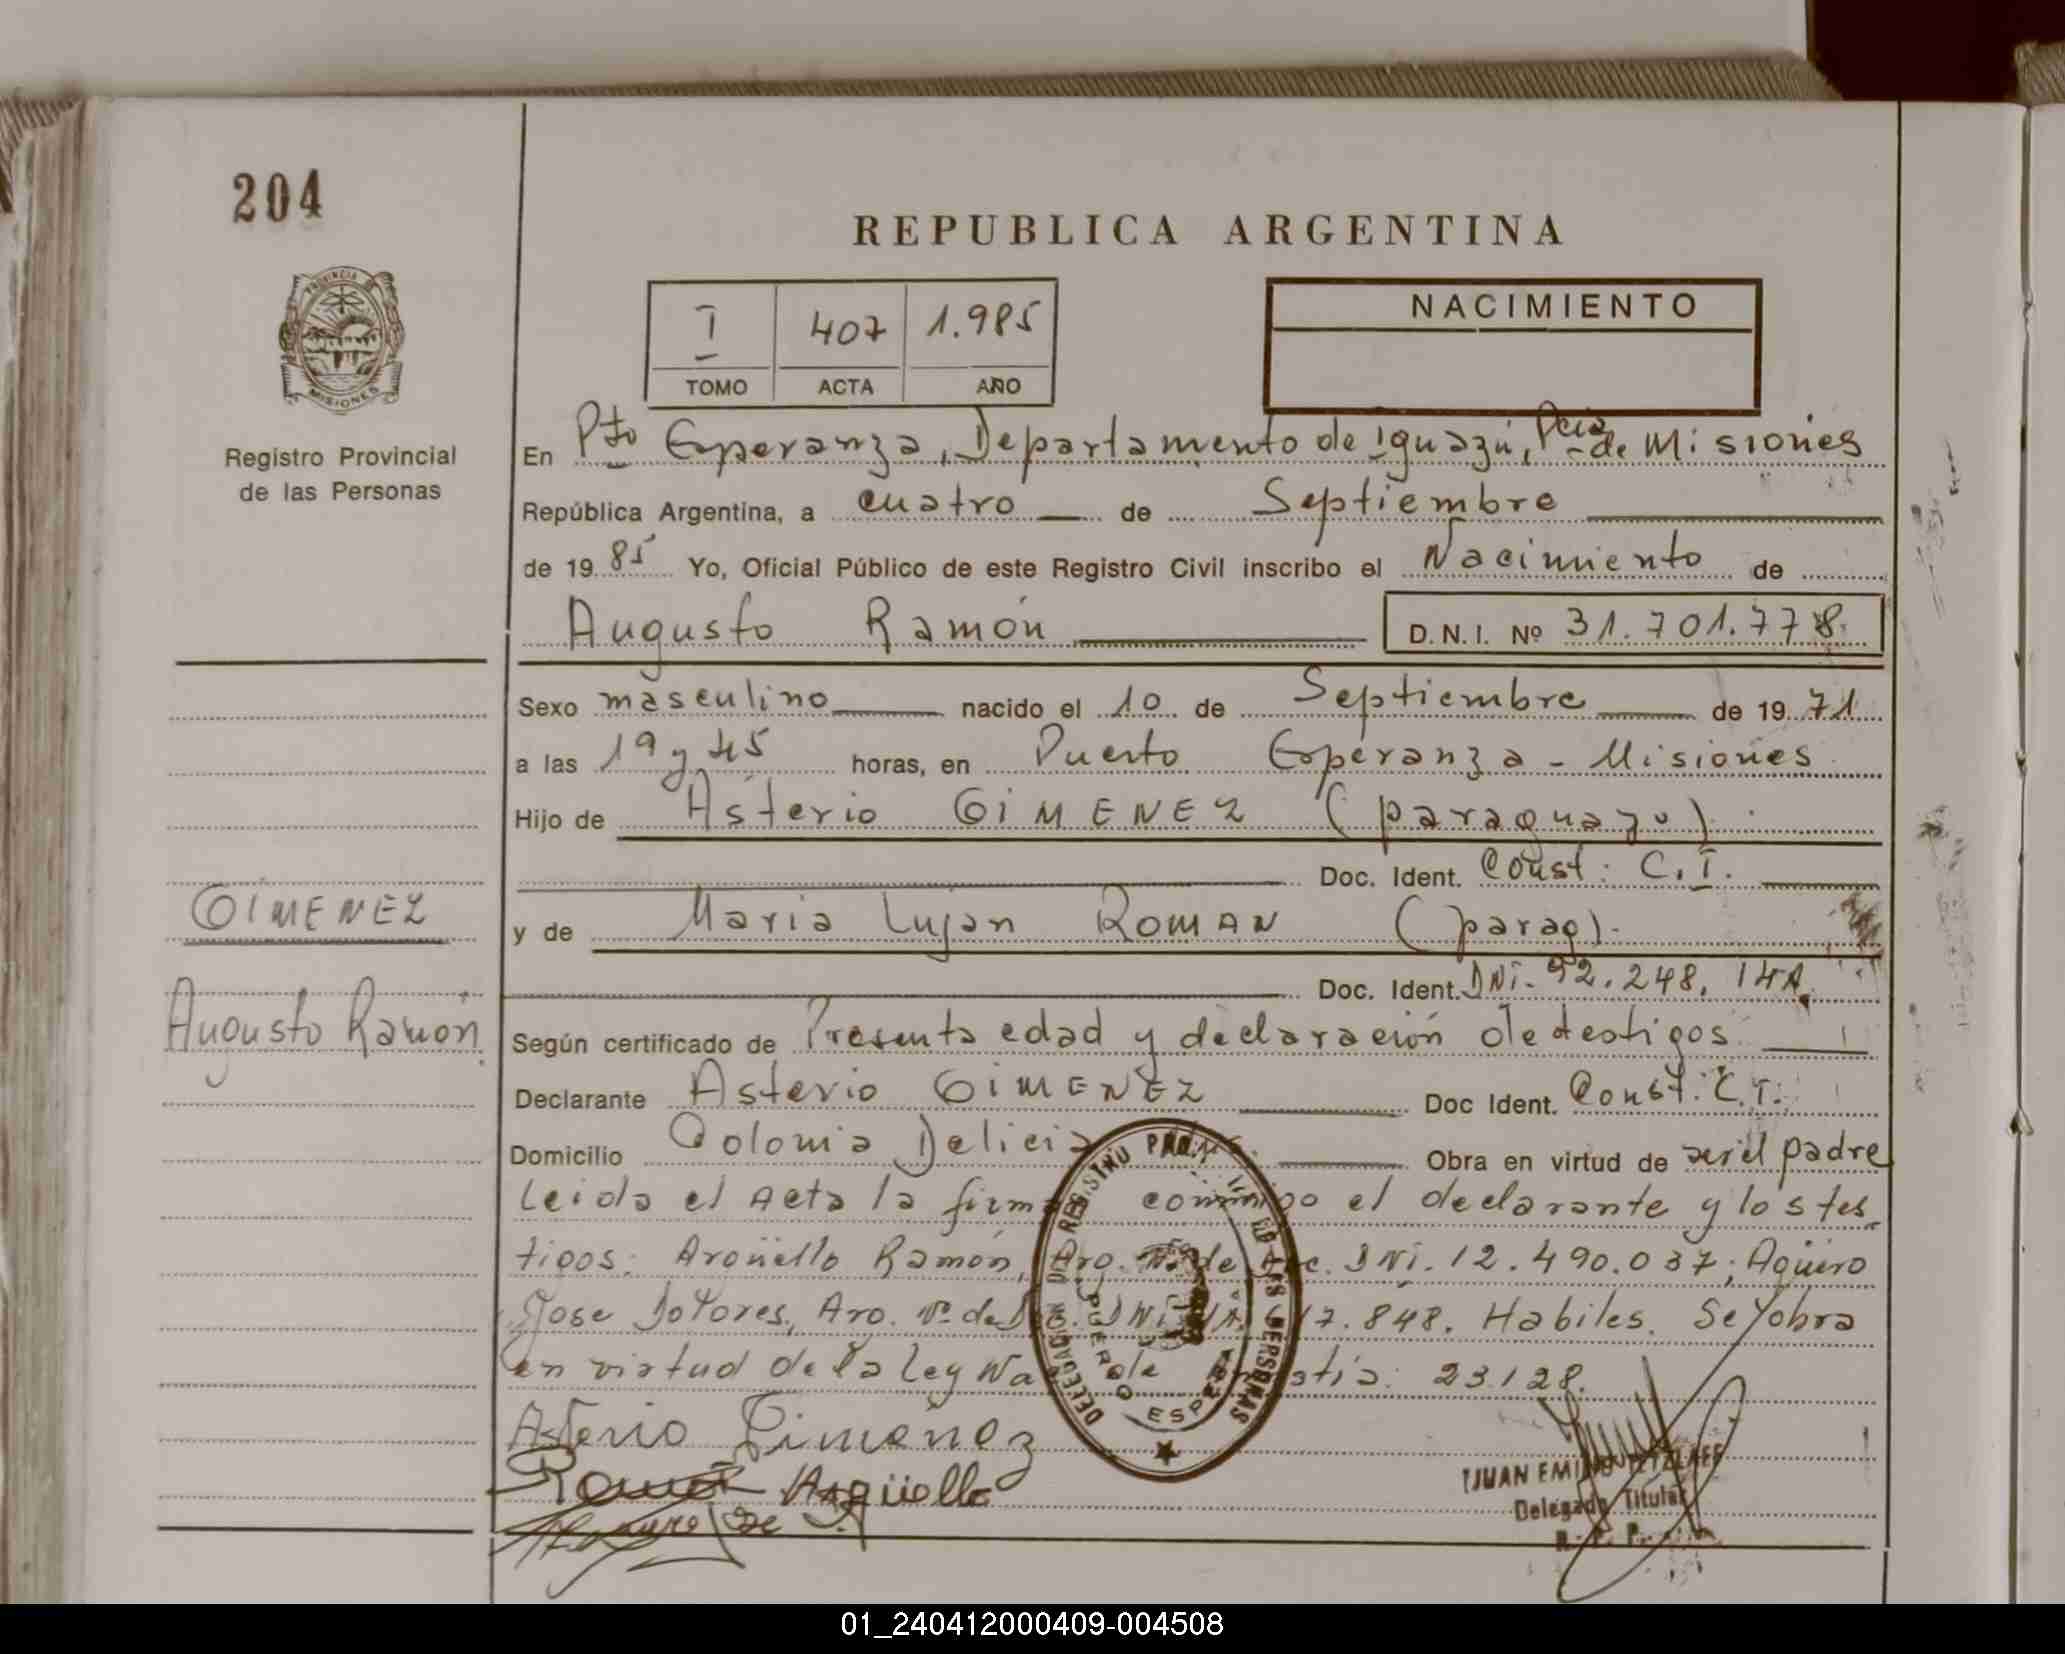 204
REPUBLICA ARGENTINA
I 407 1.985
TOMO ACTA AÑO
NACIMIENTO
PROVINCIA MISIONES
Registro Provincial
de las Personas
En Pto Esperanza, Departamento de Iguazú, Pcia de Misiones
República Argentina, a cuatro de Septiembre
de 19 85 Yo, Oficial Público de este Registro Civil inscribo el Nacimiento de
Augusto Ramón D.N.I. Nº 31.701.778
Sexo masculino nacido el 10 de Septiembre de 19 71
a las 19 y 45 horas, en Puerto Esperanza - Misiones
Hijo de Asterio GIMENEZ (paraguayo)
Doc. Ident. Const: C.I.
y de Maria Lujan ROMAN (parag).
Doc. Ident. DNI. 92.248.
Según certificado de Presunta edad y declaración de testigos
Declarante Asterio GIMENEZ Doc Ident. Const. C.I.
Domicilio Colonia Delicia Obra en virtud de ser el padre
Leida el Acta la firma conmigo el declarante y los tes-
tigos: Argüello Ramón, Arg. Nº de Doc. DNI. 12.490.037; Agüero
Jose Dolores, Arg. Nº de DNI 17.848. Habiles. Se obra
en virtud de la Ley de 23.128.
GIMENEZ
Augusto Ramón
Asterio Gimenez
Ramón Argüello
DELEGACION DEL REGISTRO PROV. DE LAS PERSONAS
PUERTO ESPERANZA
JUAN EMILIO
Delegado Titular
01_240412000409-004508